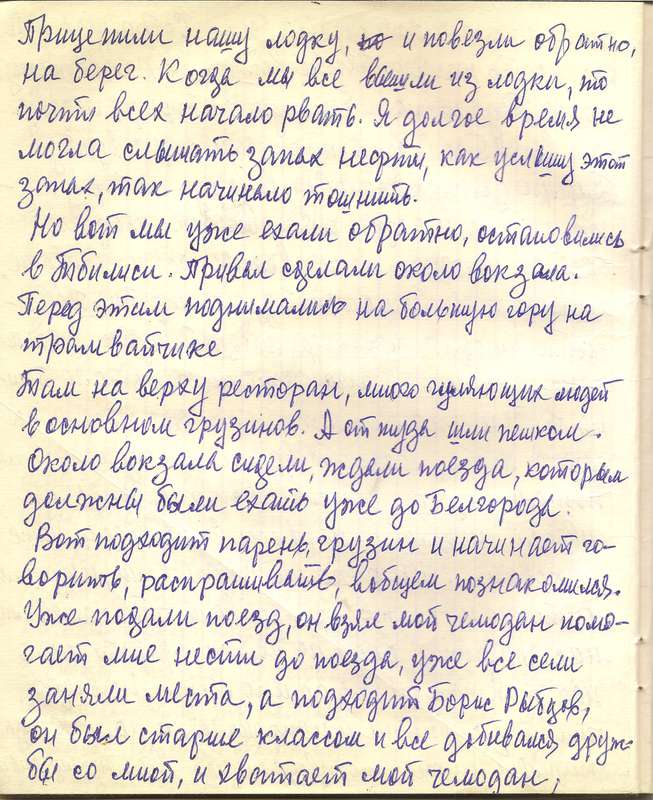 Прицепили нашу лодку, и повезли обратно,
на берег. Когда мы все вышли из лодки, то
почти всех начало рвать. Я долгое время не
могла слышать запах нефти, как услышу этот
запах, так начинало тошнить.
Но вот мы уже ехали обратно, остановились
в Тбилиси. Привал сделали около вокзала.
Перед этим поднимались на большую гору на
трамвайчике
Там на верху ресторан, много гуляющих людей
в основном грузинов. А от туда шли пешком.
Около вокзала сидели, ждали поезда, которым
должны были ехать уже до Белгорода.
Вот подходит парень, грузин и начинает го-
ворить, распрашивать, вобщем познакомился.
Уже подали поезд, он взял мой чемодан помо-
гает мне нести до поезда, уже все сели
заняли места, а подходит Борис Рыбцов,
он был старше классом и все добивался друж-
бы со мной, и хватает мой чемодан,